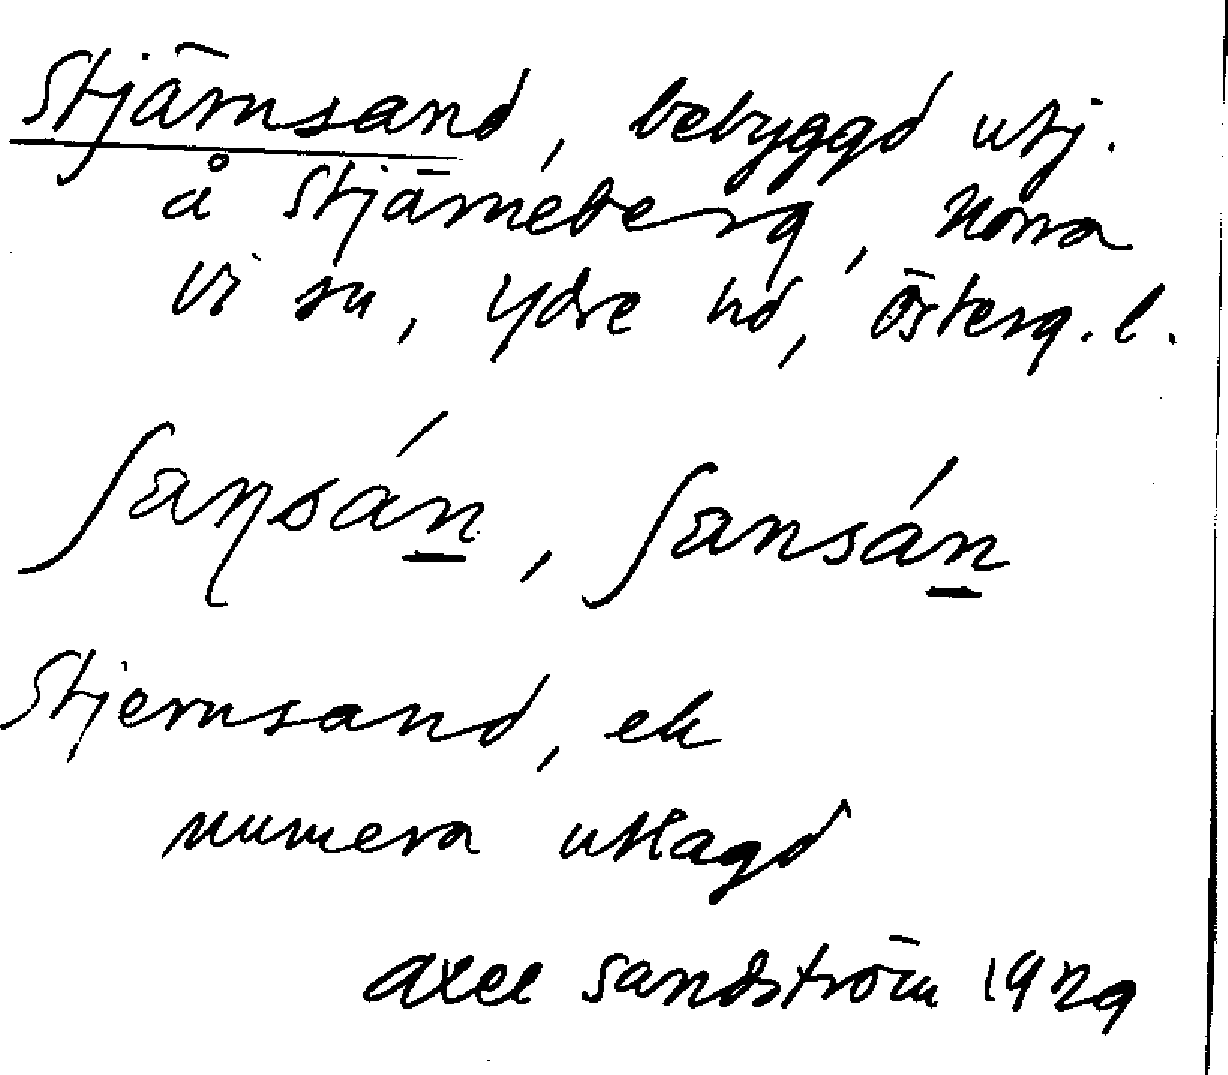 Stjärnsand, bebyggd utj.
å Stjärneberg, Norra
Vi sn, Ydre hd, Österg. l.
ʃaɳsán̲, ʃansán̲
Stjernsand, ek
numera utlagd
Axel Sandström 1929